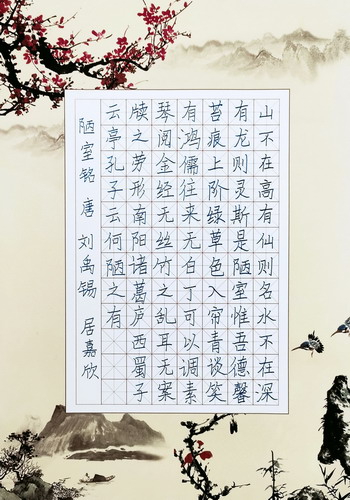 山不在高有仙则名水不在深
有龙则灵斯是陋室惟吾德馨
苔痕上阶绿草色入帘青谈笑
有鸿儒往来无白丁可以调素
琴阅金经无丝竹之乱耳无案
牍之劳形南阳诸葛庐西蜀子
云亭孔子云何陋之有
陋室铭 唐 刘禹锡 居嘉欣